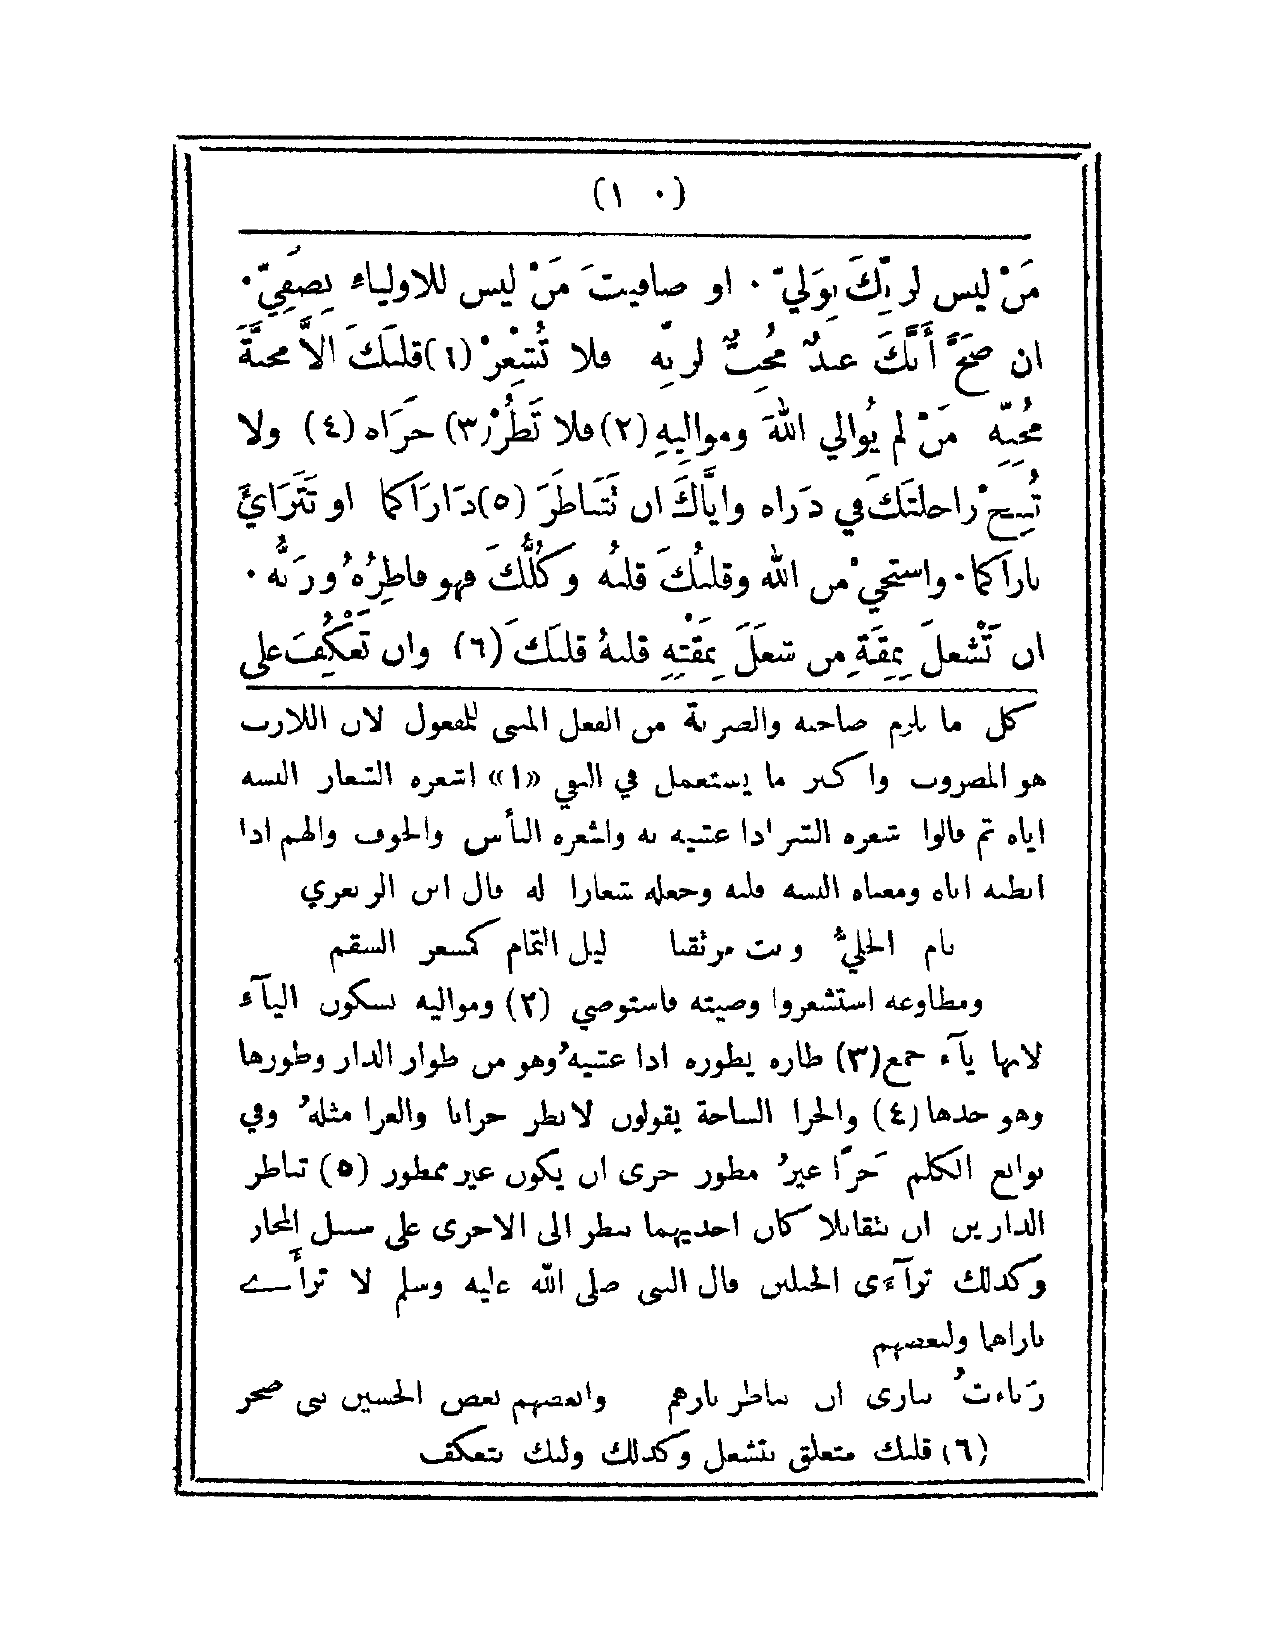 (١٠)
مَنْ ليس لربِّكَ بوَليّ ٠ او صافيتَ مَنْ ليس للاولياء بِصَفِيّ ٠
ان صَحَّ أَنَّكَ عبدٌ مُحِبٌّ لربِّه فلا تُشْعِرْ (١) قلبَكَ الاَّ محبَّةَ
مُحِبِّه مَنْ لم يُوالي اللهَ ومواليهِ (٢) فلا تَطُرْ (٣) حَرَاه (٤) ولا
تُنِخْ راحلتَكَ في دَراه وايَّاكَ ان تَتَناظَرَ (٥) دَارَاكما او تَتَرَاءَى
ناراكما ٠ واستحي من الله وقلبُكَ قلبُهُ وكُلُّكَ فهو فاطِرُهُ وربُّه ٠
ان تَشْغلَ بِمِقَةِ من شغَلَ بِمِقَتِهِ قلبهُ قلبَكَ (٦) وان تَعْكُفَ على
كل ما يلزم صاحبه والضربة من الفعل المبنى للمفعول لان اللازب
هو المضروب واكثر ما يستعمل في النفي «١» اشعره الشعار البسه
اياه ثم قالوا شعره الشر اذا غشيه به واشعره البأس والخوف والهم اذا
ابطنه اياه ومعناه البسه قلبه وجعله شعارا له قال ابن الزبعري
نام الخليّ وبت مرتفقا ليل التمام كمشعر السقم
ومطاوعه استشعروا وصيته فاستوصي (٢) ومواليه بسكون اليآء
لانها يآء جمع (٣) طاره يطوره اذا غشيه وهو من طوار الدار وطورها
وهو حدها (٤) والحرا الساحة يقولون لا تطر حرانا والعرا مثلهُ وفي
نوابغ الكلم حَرًا غيرُ مطور حرى ان يكون غير ممطور (٥) تناظر
الدارين ان يتقابلا كان احديهما تنظر الى الاخرى على سبيل المجاز
وكذلك ترآءى الجبلين قال النبى صلى الله عليه وسلم لا ترأى
ناراهما ولبعضهم
رَناءتُ ناري ان تناظر نارهم وابغضهم بغض الحسين بني صخر
(٦) قلبك متعلق بتشغل وكذلك وليك بتعكف